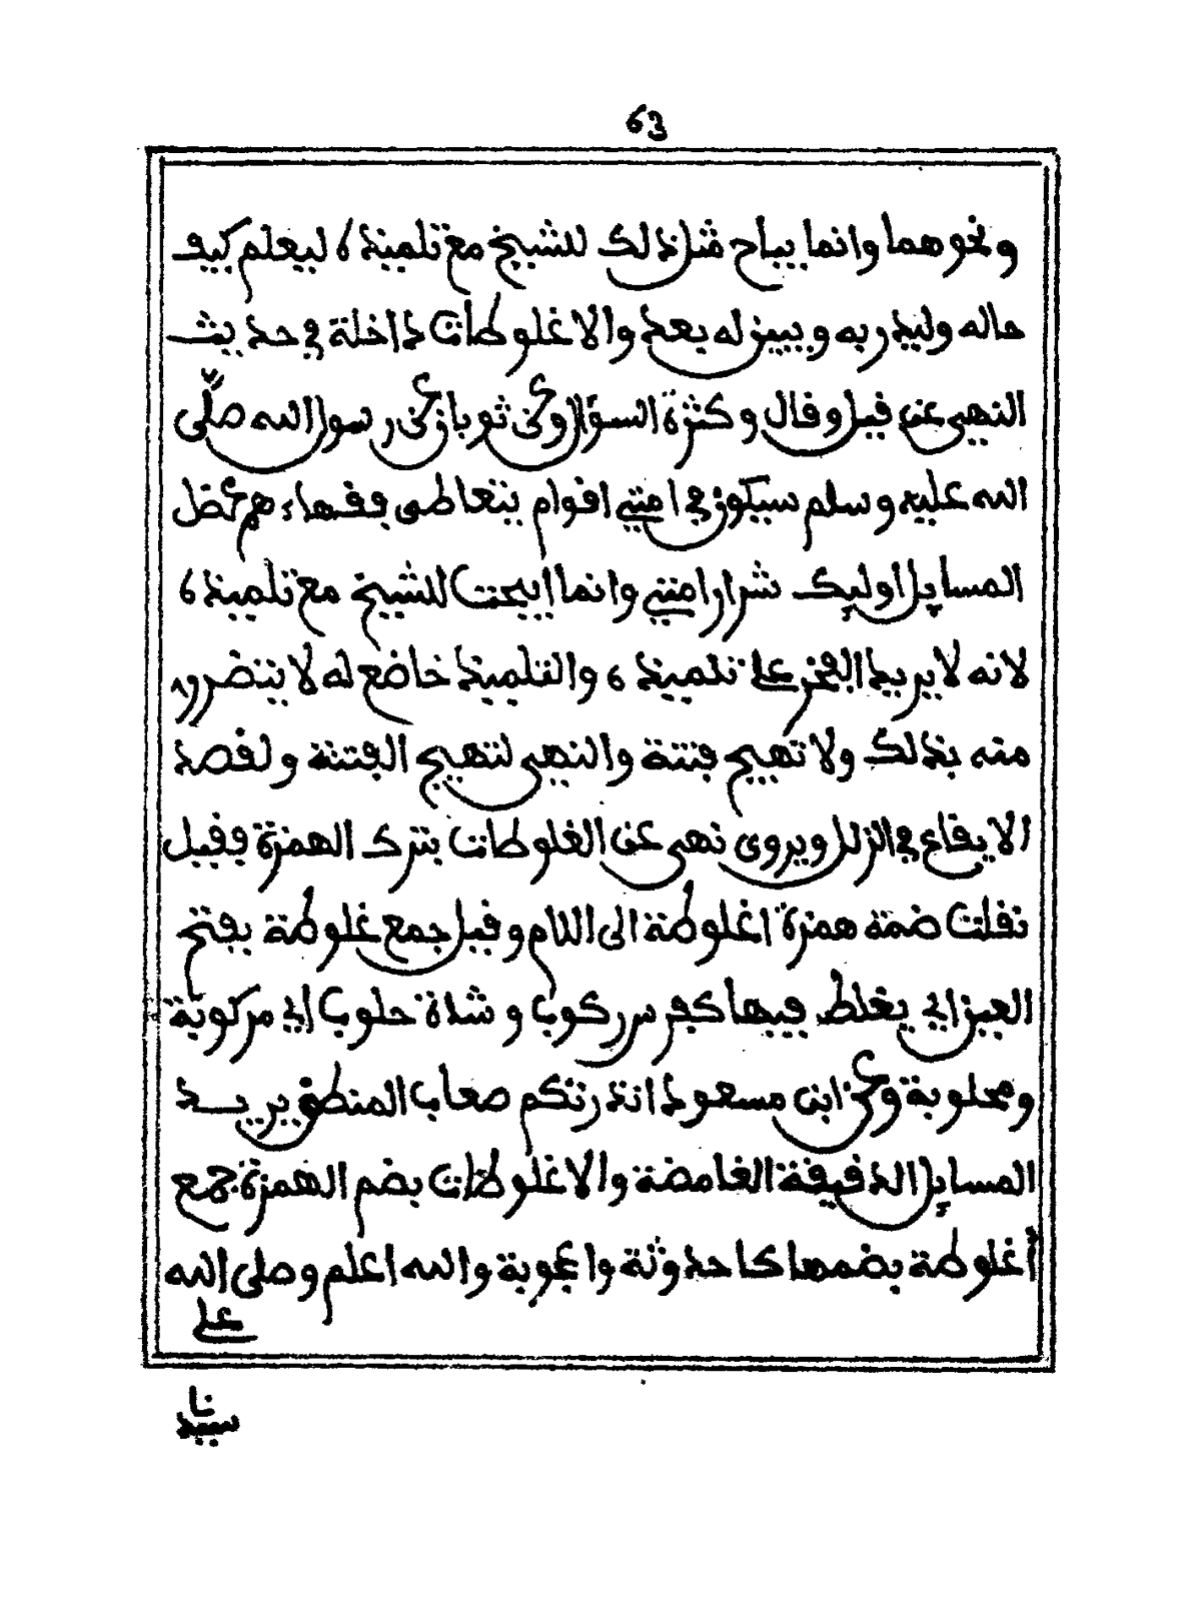 63
ونحوهما وانما يباح مثل ذلك للشيخ مع تلميذه ليعلم كيف
حاله وليدربه ويبين له بعد والاغلوطات داخلة في حديث
النهي عن قيل وقال وكثرة السؤال وعن ثوبان عن رسول الله صلى
الله عليه وسلم سيكون في امتي اقوام يتعاطى فقهاءهم عضل
المسايل اوليك شرار امتي وانما ابيحت للشيخ مع تلميذه
لانه لا يريد الفخر على تلميذه والتلميذ خاضع له لا يتضرر
منه بذلك ولا تهييج فتنة والنهي لتهييج الفتنة ولقصد
الايقاع في الزلل ويروى نهى عن الغلوطات بترك الهمزة فقيل
نقلت ضمة همزة اغلوطة الى اللام وقيل جمع غلوطة بفتح
الغين اي يغلط فيها كفرس ركوب وشاة حلوب اي مركوبة
ومحلوبة وعن ابن مسعود انذرتكم صعاب المنطق يريد
المسايل الدقيقة الغامضة والاغلوطات بضم الهمزة جمع
أغلوطة بضمها كاحدوثة واعجوبة والله اعلم وصلى الله
على
سيدنا